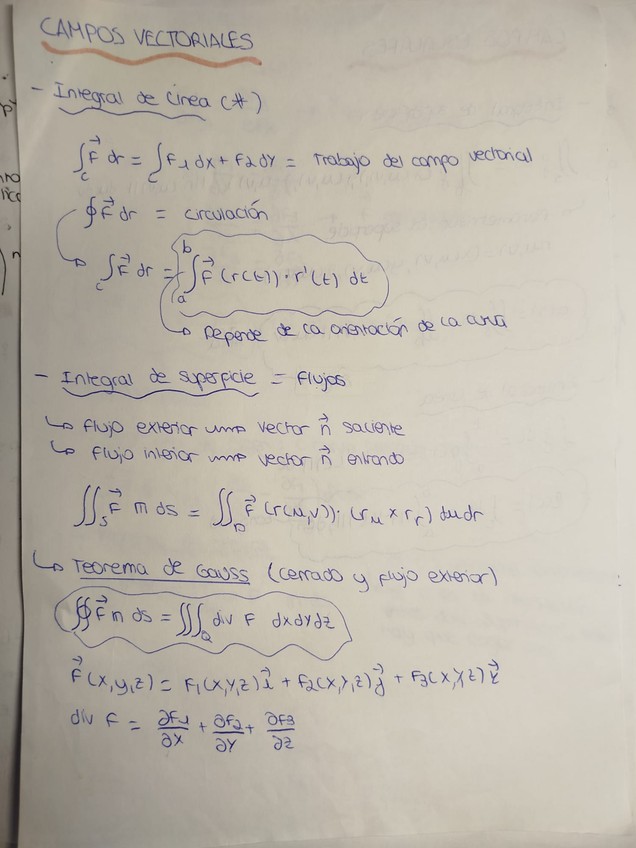 CAMPOS VECTORIALES
- Integral de Linea (*)
∫_C F⃗ dr = ∫_C F1 dx + F2 dy = Trabajo del campo vectorial
∮ F⃗ dr = circulación
↳ ∫_C F⃗ dr = ∫_a^b F⃗ (r(t)) · r'(t) dt
↳ Depende de la orientación de la curva
- Integral de superficie = flujos
↳ flujo exterior ⟹ vector n⃗ saliente
↳ flujo interior ⟹ vector n⃗ entrando
∬_S F⃗ n ds = ∬_D F⃗ (r(u,v)) · (r_u × r_v) du dv
↳ Teorema de Gauss (cerrado y flujo exterior)
∯ F⃗ n ds = ∭_Q div F dx dy dz
F⃗ (x,y,z) = F1(x,y,z) i⃗ + F2(x,y,z) j⃗ + F3(x,y,z) k⃗
div F = ∂F1/∂x + ∂F2/∂y + ∂F3/∂z